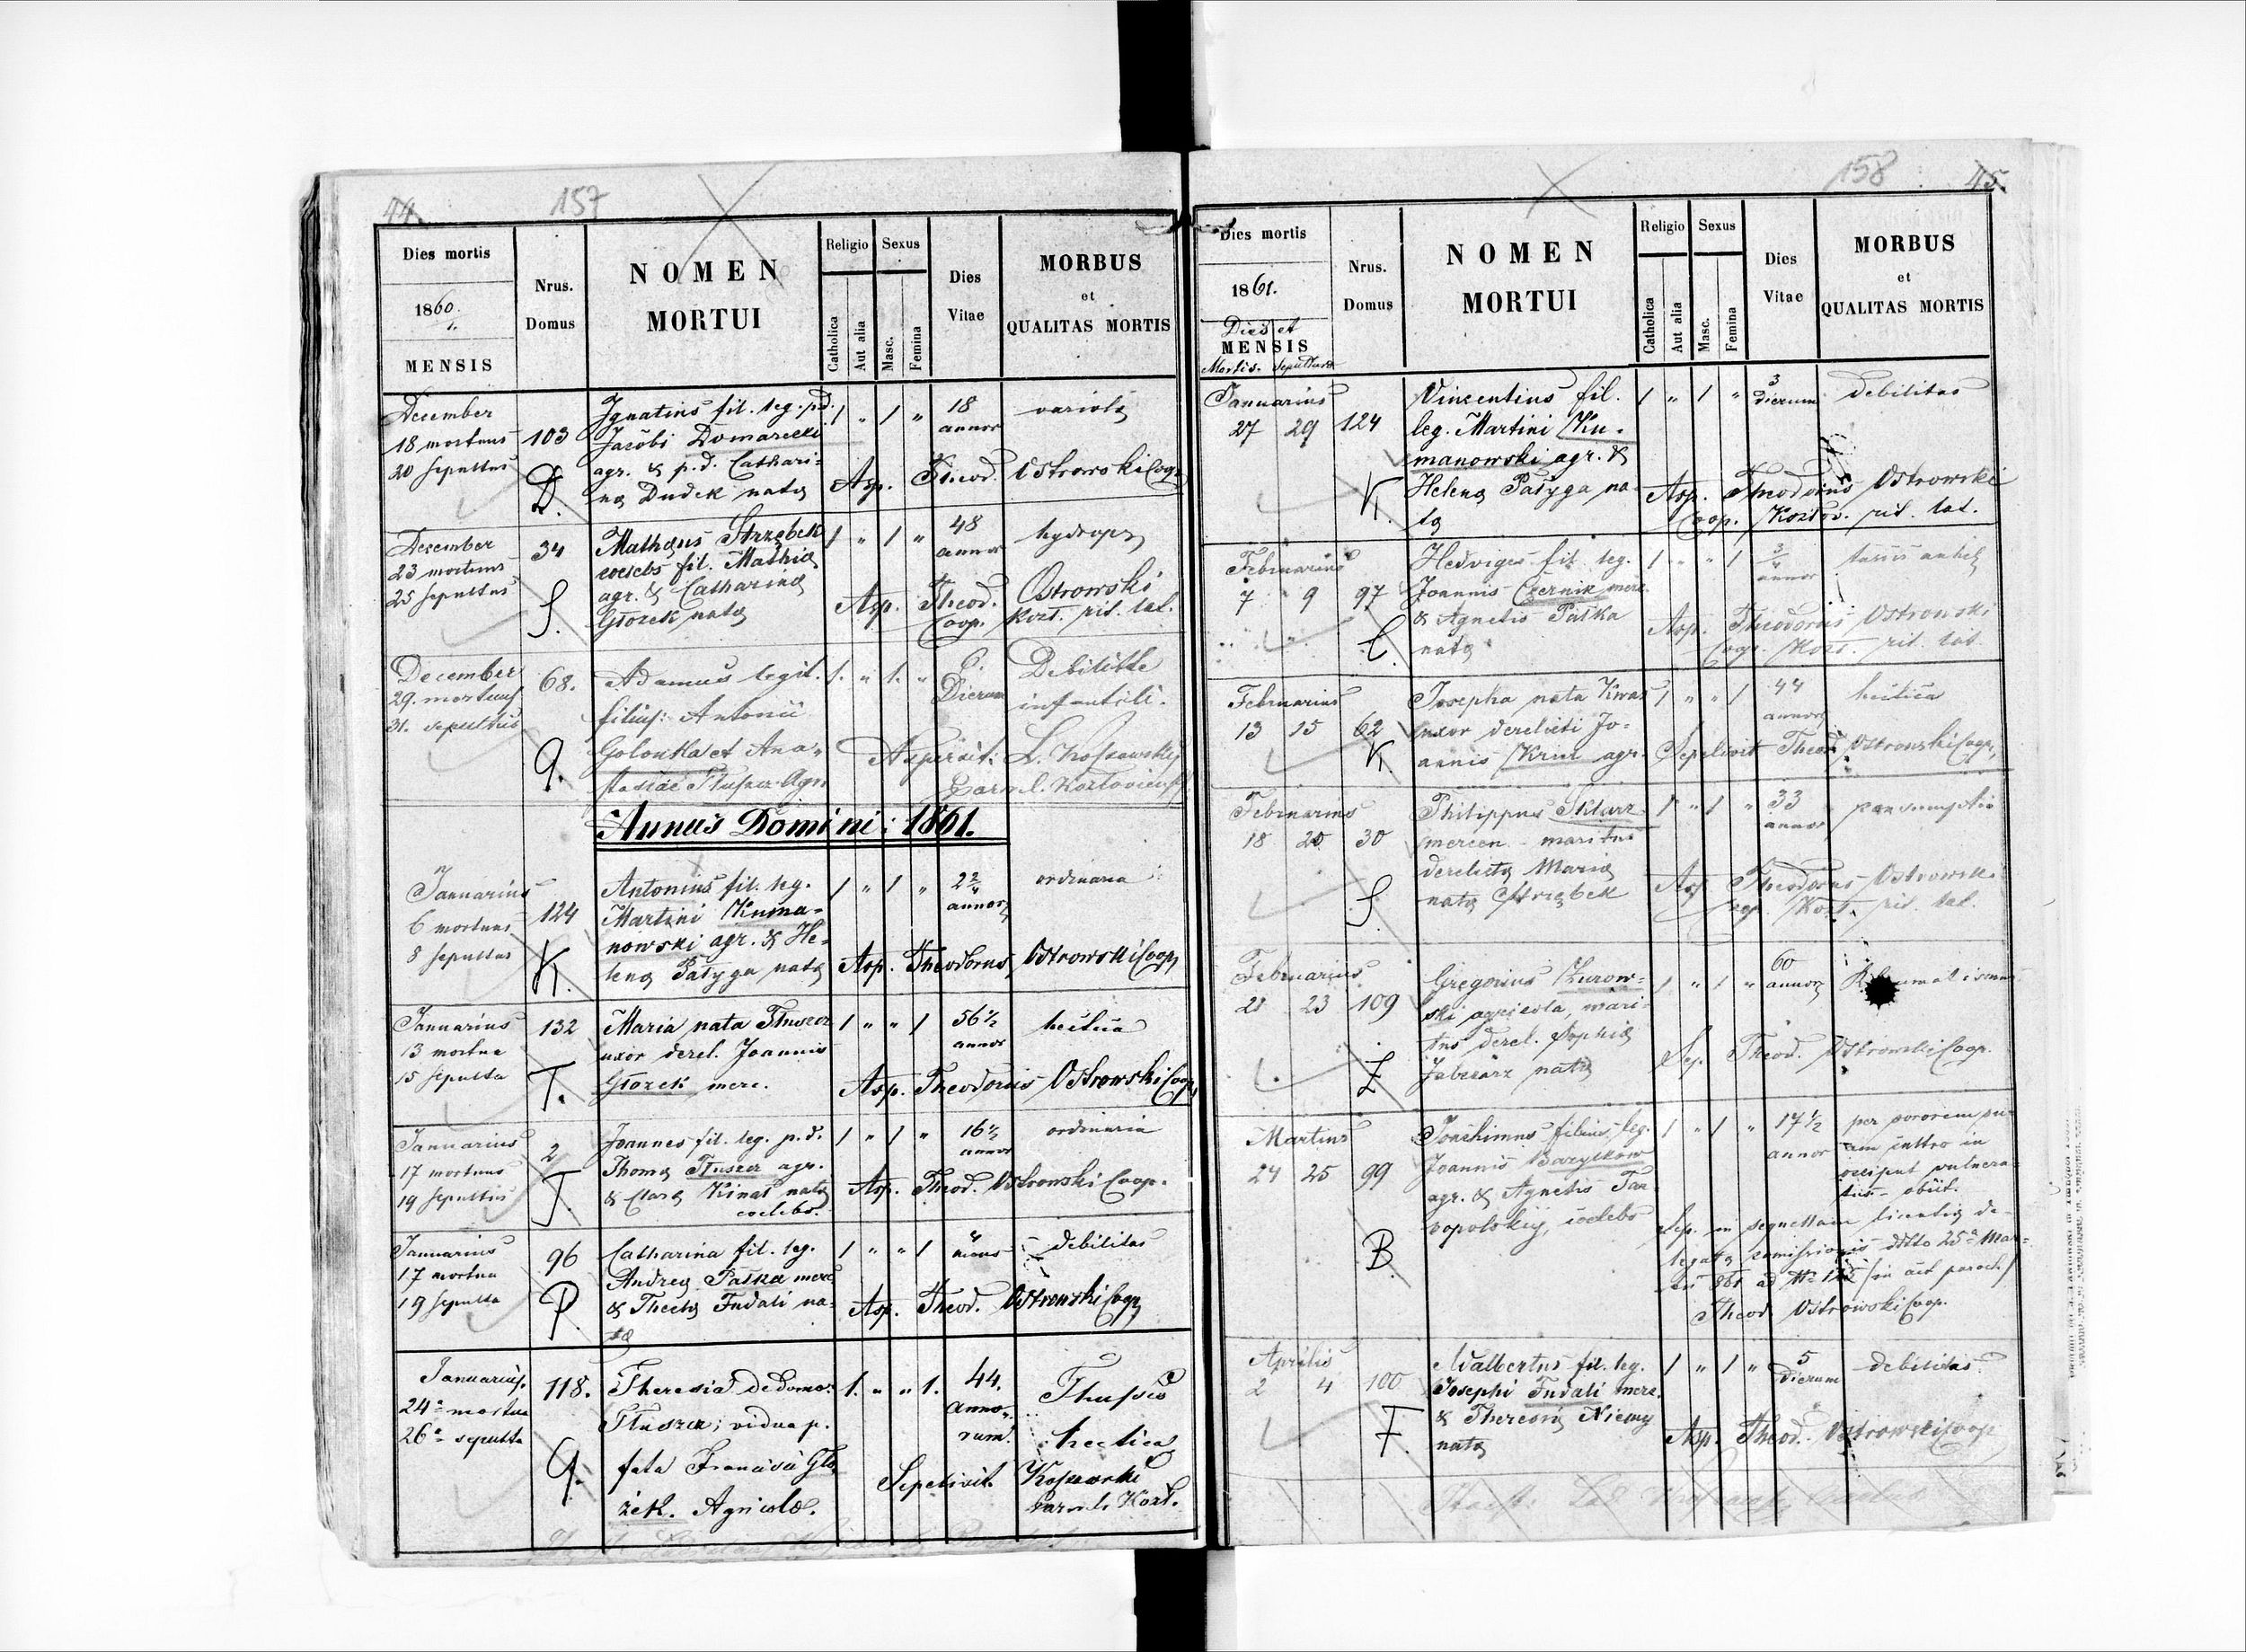 44.
157
Dies mortis
1860.
MENSIS
Nrus.
Domus
NOMEN
MORTUI
Religio
Catholica
Aut alia
Sexus
Masc.
Femina
Dies
Vitae
MORBUS
et
QUALITAS MORTIS
December
18 mortuus
20 sepultus
103
D.
Ignatius fil. leg. p.d.
Jacobi Domarecki
agr. & p.d. Cathari-
na Dudek nata
1 " 1 "
18
annor
variola
Asp. Theod. Ostrowski Coop.
December
23 mortuus
25 sepultus
34
S.
Mathæus Strzębek
coelebs fil. Mathia
agr. & Catharina
Głozek nata
1 " 1 "
48
annor
hydrops
Asp. Theod. Ostrowski
Coop. Kozł. rit. lat.
December
29. mortuus
31. sepultus
68.
G.
Adamus legit.
filius: Antonii
Golonka et Ana-
stasiae Tłuszcz Agr.
1. " 1. "
6.
Dierum
Debilitate
infantili.
Aspersit: L.
Annus Domini: 1861.
Januarius
6 mortuus
8 sepultus
124
K.
Antonius fil. leg.
Martini Kuma-
nowski agr. & He-
lena Pałyga nata
1 " 1 "
annor
ordinaria
Asp. Theodorus Ostrowski Coop.
Januarius
13 mortua
15 sepulta
132
T.
Maria nata Tłuszcz
uxor derel. Joannis
Głozek merc.
1 " " 1
56 1/2
annor
hectica
Asp. Theodorus Ostrowski Coop.
Januarius
17 mortuus
19 sepultus
2
T.
Joannes fil. leg. p.d.
Thoma Tłuszcz agr.
& Clara Kinal nata
coelebs.
1 " 1 "
16 1/2
annor
ordinaria
Asp. Theod. Ostrowski Coop.
Januarius
17 mortua
19 sepulta
96
P.
Catharina fil. leg.
Andrea Paśka merc
& Thecla Fudali na-
ta
1 " " 1
debilitas
Asp. Theod. Ostrowski Coop.
Januarius.
24a mortua
26a sepulta
118.
G.
Theresia de domo:
Tłuszcz; vidua p.
fata Francisci Gło
zek. Agricolæ.
1. " " 1.
44.
anno-
rum.
Hectica
Sepelivit
158
45.
Dies mortis
1861.
Dies et
MENSIS
Mortis. Sepulturæ
Nrus.
Domus
NOMEN
MORTUI
Religio
Catholica
Aut alia
Sexus
Masc.
Femina
Dies
Vitae
MORBUS
et
QUALITAS MORTIS
Januarius
27 29
124
K.
Vincentius fil.
leg. Martini Ku-
manowski agr. &
Helena Pałyga na-
ta
1 " 1 "
3
dierum
debilitas
Asp. Theodorus Ostrowski
Coop. Kozłov. rit. lat.
Februarius
7 9
97
C.
Hedviges fil. leg.
Joannis Czernik merc.
& Agnetis Paśka
nata
1 " " 1
3/4
annor
Asp. Theodorus Ostrowski
Coop. Kozł. rit. lat.
Februarius
13 15
62
K
Josepha nata Kwas
uxor derelicti Jo-
annis Kruz agr.
1 " " 1
44
annor
hectica
Sepelivit Theod. Ostrowski Coop.
Februarius
18 20
30
S.
Philippus Sklarz
mercen. maritus
derelicta Maria
nata Strzębek
1 " 1 "
33
annor
consumptio
Asp. Theodorus Ostrowski
Coop. Kozł. rit. lat.
Februarius
21 23
109
Ż
Gregorius Żurow-
ski agricola, mari-
tus derel. Sophia
nata
1 " 1 "
60
annor
Rheumatismus
Sep. Theod. Ostrowski Coop.
Martius
24 25
99
B
Joachimus filius leg.
Joannis Baryłków
agr. & Agnetis Tar-
nopolskij, coelebs
1 " 1 "
17 1/2
annor
per sororem su-
am cultro in
occiput vulnera-
tus - obiit.
Sep. in sequellam licentia de-
legata comissionis ddto 25a Mar-
tii 861 ad N
Theod. Ostrowski Coop.
Aprilis
2 4
100
F.
Adalbertus fil. leg.
Josephi Fudali merc.
& Theresia Niemy
nata
1 " 1 "
5
dierum
debilitas
Asp. Theod. Ostrowski Coop